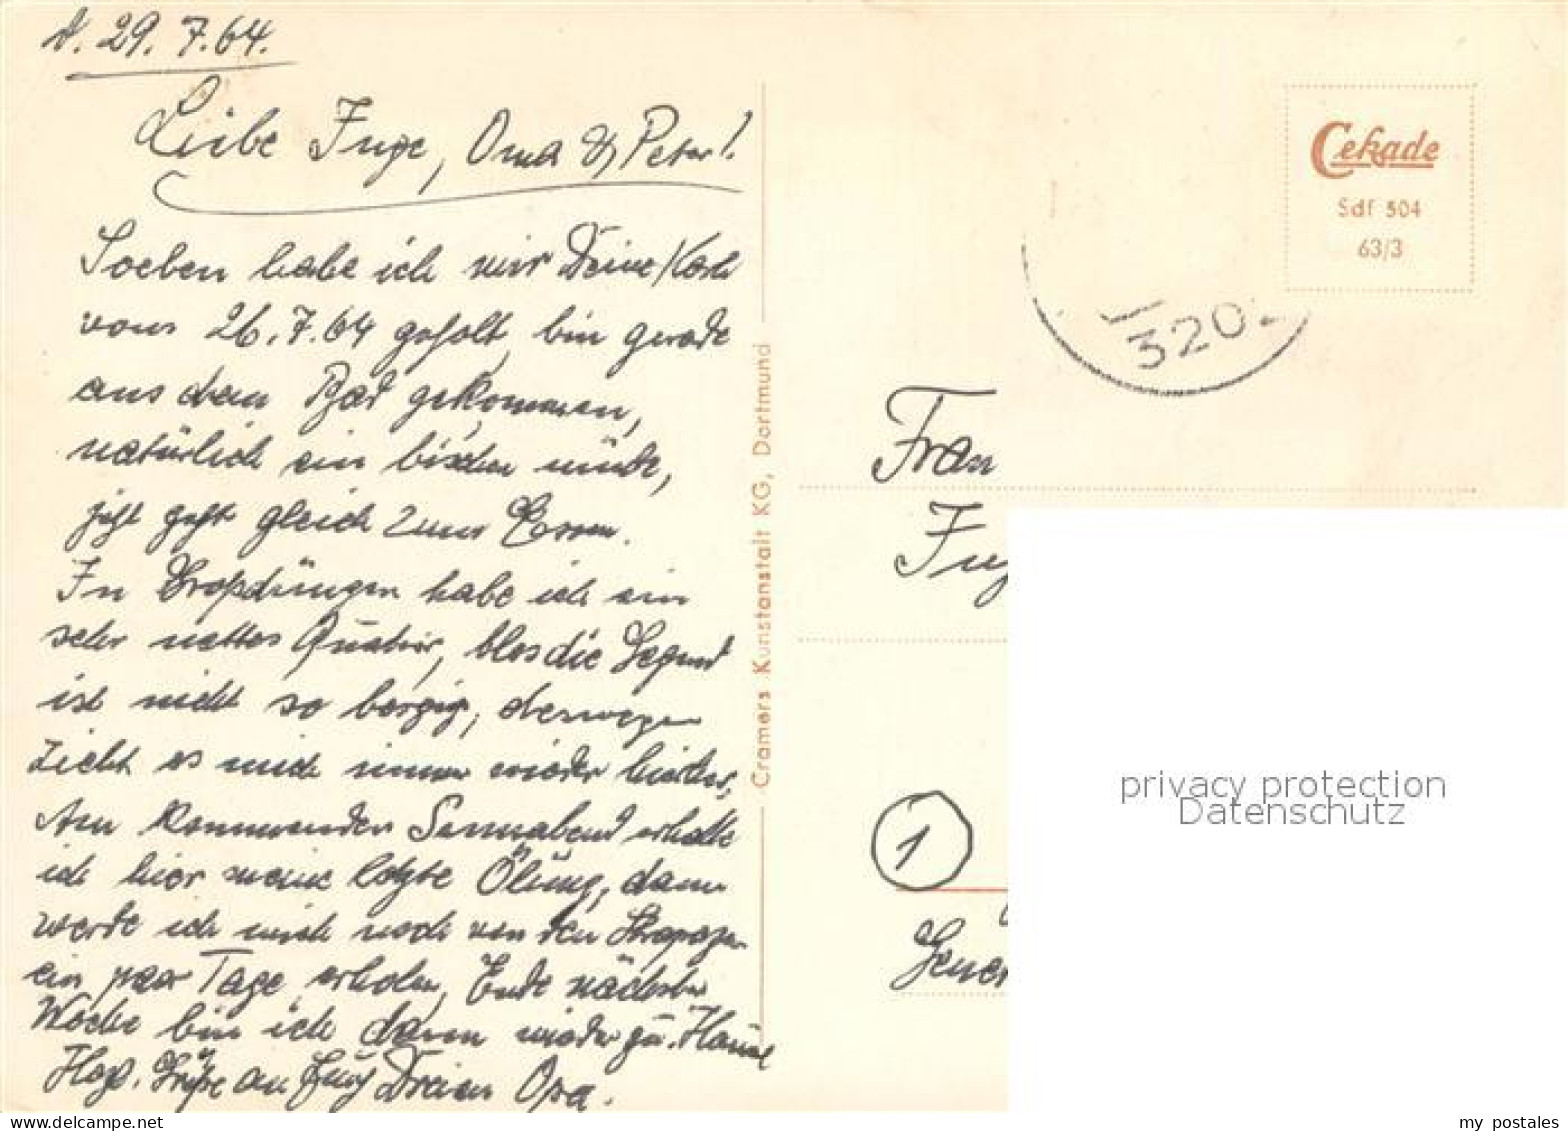 d. 29.7.64.
Liebe Inge, Oma & Peter!
Soeben habe ich mir Deine Karte
vom 26.7.64 geholt, bin gerade
aus dem Bad gekommen,
natürlich ein bischen müde,
jetzt geht gleich zum Essen.
In Großdüngen habe ich ein
sehr nettes Quatier, blos die Gegend
ist nicht so bergig, deswegen
zieht es mich immer wieder hierher.
Am kommenden Sonnabend erhalte
ich hier meine letzte Ölung, dann
werde ich mich noch von den Strapazen
ein paar Tage erholen, Ende nächster
Woche bin ich dann wieder zu Hause
Herzl. Grüße an Euch Dreien Opa.
Cramers Kunstanstalt KG, Dortmund
Cekade
Sdf 504
63/3
320
Frau
Ing
1
privacy protection
Datenschutz
my postales